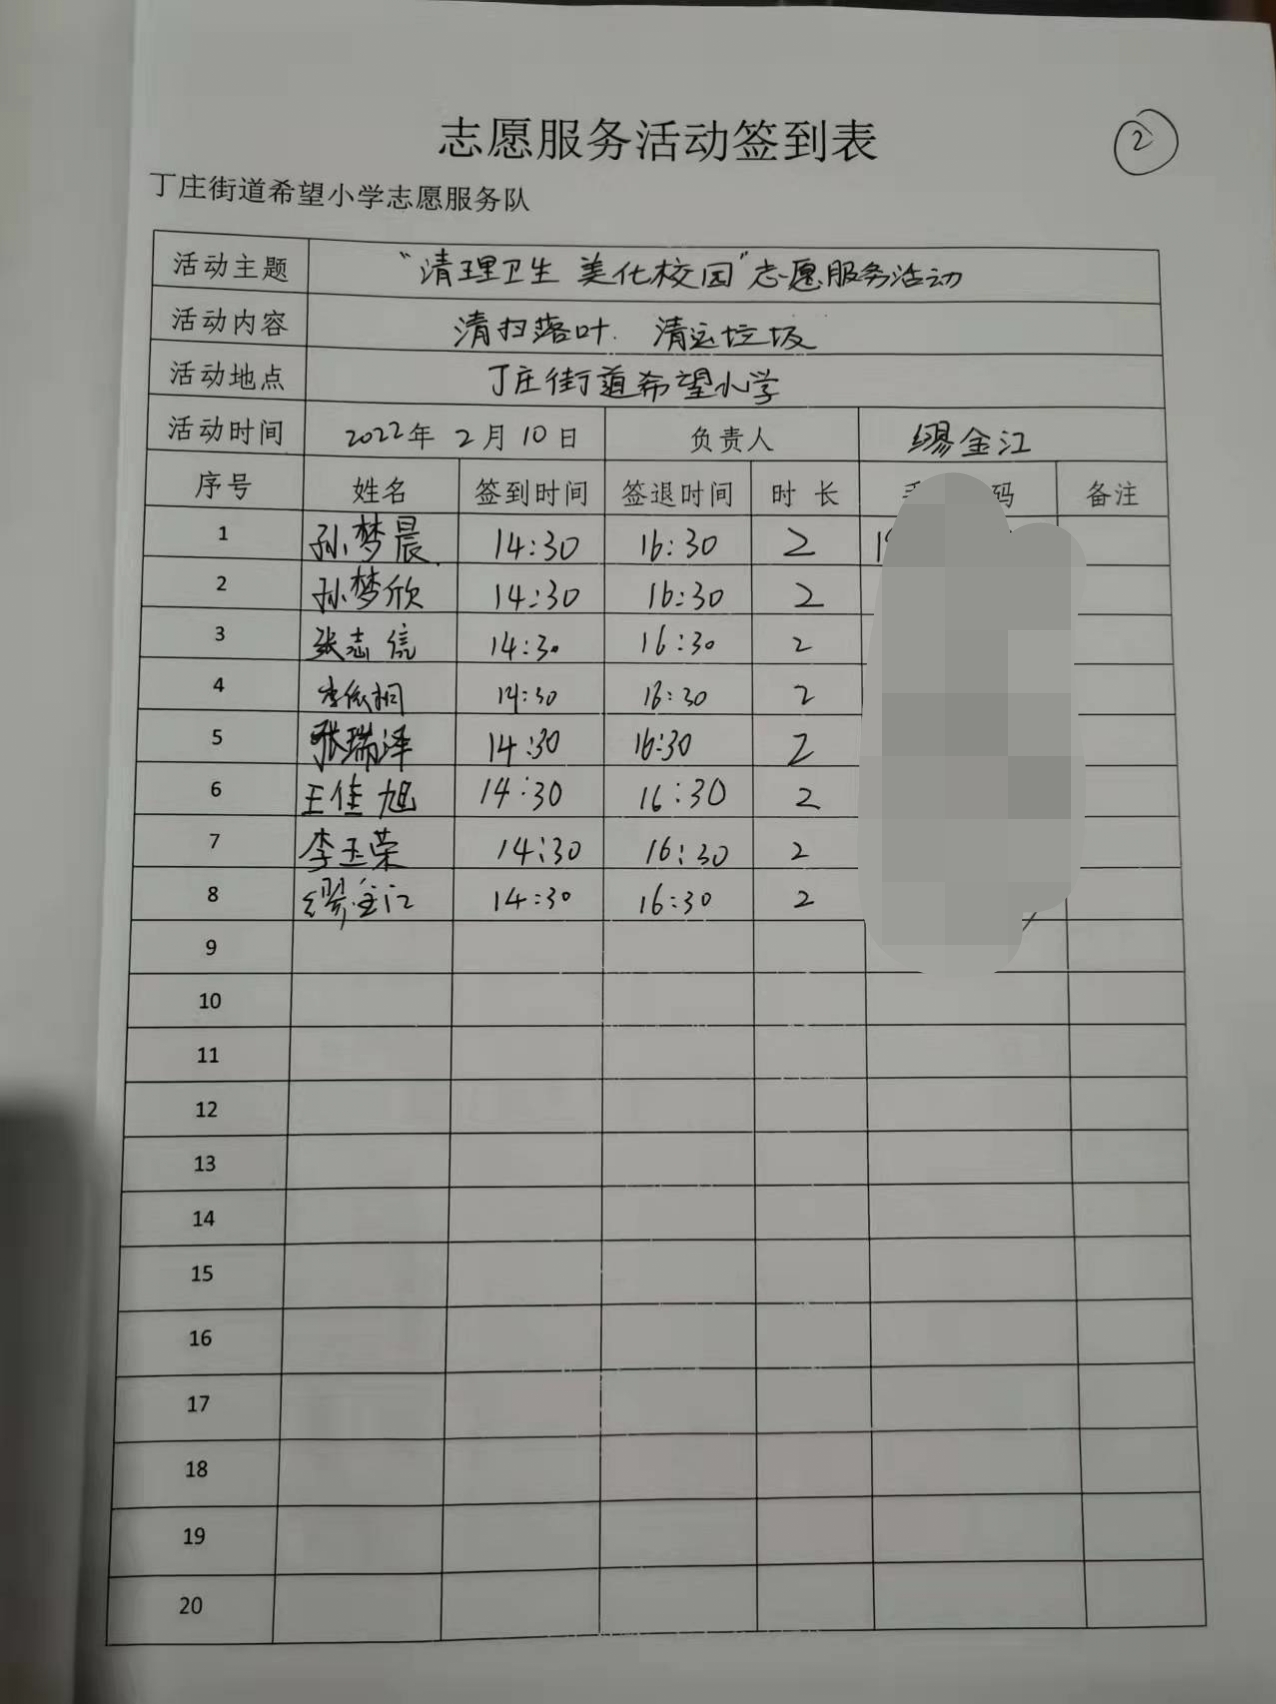 志愿服务活动签到表
②
丁庄街道希望小学志愿服务队
活动主题 “清理卫生 美化校园”志愿服务活动
活动内容 清扫落叶. 清运垃圾
活动地点 丁庄街道希望小学
活动时间 2022年 2月 10日 负责人 缪金江
序号 姓名 签到时间 签退时间 时 长 码 备注
1 孙梦晨 14:30 16:30 2
2 孙梦欣 14:30 16:30 2
3 张志信 14:30 16:30 2
4 李依桐 14:30 16:30 2
5 张瑞泽 14:30 16:30 2
6 王佳旭 14:30 16:30 2
7 李玉荣 14:30 16:30 2
8 缪金江 14:30 16:30 2
9
10
11
12
13
14
15
16
17
18
19
20